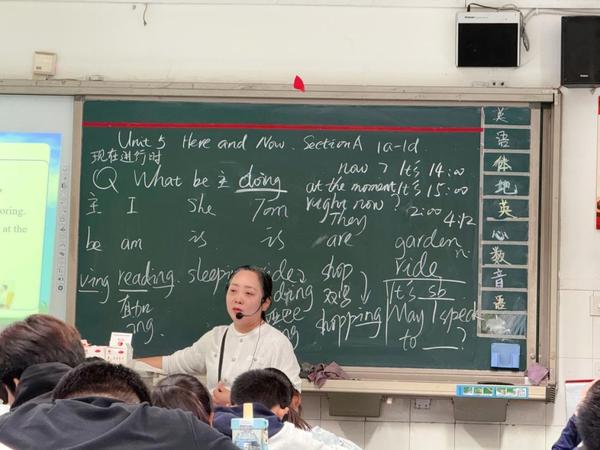 Unit 5 Here and Now. Section A 1a-1d
现在进行时
Q What be 主 doing
now? It's 14:00
at the moment It's 15:00
right now? 2:00 4:12
主 I she Tom They
be am is is are garden
ving reading. sleeping
shop ride
双写
shopping
It's sb
May I speak
to ?
oring.
at the
英
语
体
地
英
心
数
音
语